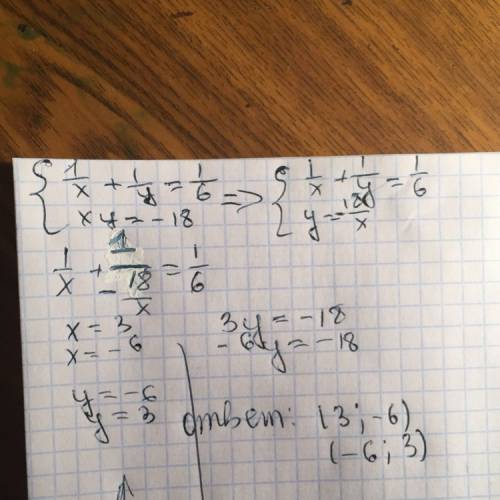 { 1/x + 1/y = 1/6 => { 1/x + 1/y = 1/6
xy = -18 y = -18/x
1/x + 1/(-18/x) = 1/6
x = 3 3y = -18
x = -6 -6y = -18
y = -6
y = 3 ответ: (3; -6)
(-6; 3)